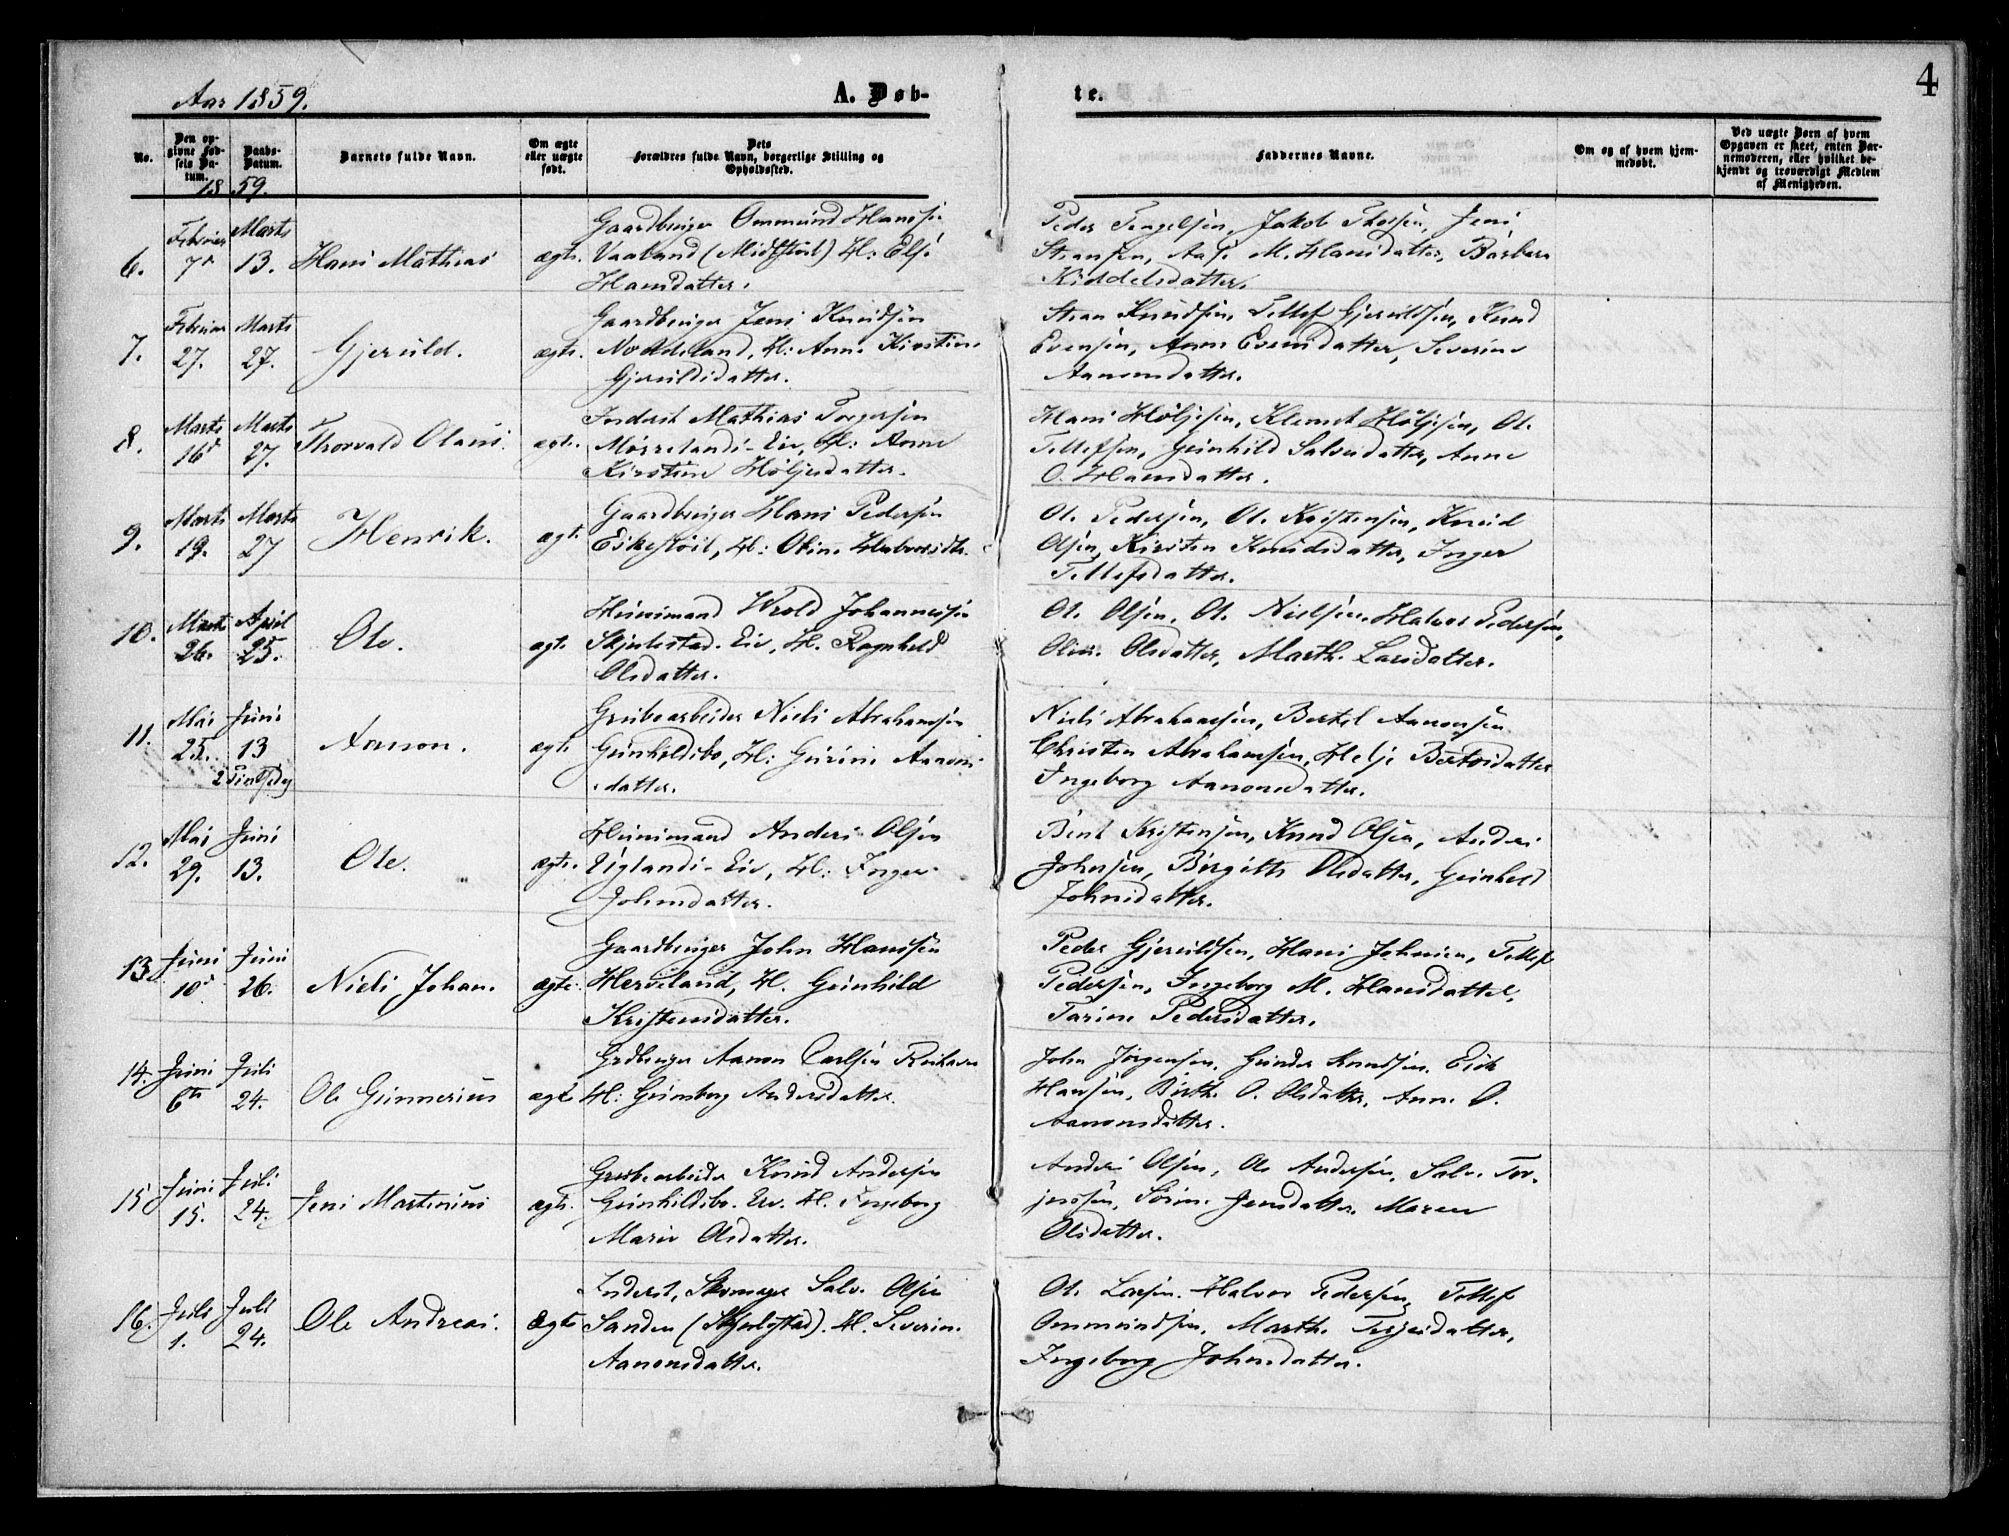 Aar 1859.
A. Døb-
te.
4
No.
Den opgivne Fødsels Datum.
Daabs-Datum.
Barnets fulde Navn.
Om ægte eller uægte født.
Dets Forældres fulde Navn, borgerlige Stilling og Opholdssted.
Faddernes Navne.
Om og af hvem hjemmedøbt.
Ved uægte Børn af hvem Opgaven er skeet, enten Barnemoderen, eller hvilket bekjendt og troværdigt Medlem af Menigheden.
1859.
Februar Marts Gaardbruger Ommund Hanssen Peder Tengelsen, Jakob Thorsen, Jens
6. 7de 13. Hans Mathias ægte. Vaaland (Midtstøl) H: Else Stiansen, Aase M. Hansdatter, Barbara
Hansdatter. Kiddelsdatter.
Februar Marts Gaardbruger Jens Knudsen Stian Knudsen, Tellef Gjeruldsen, Knud
7. 27. 27. Gjeruld. ægte. H: Anne Kirstine Evensen, Anne Evensdatter, Severine
Gjeruldsdatter. Aanonsdatter.
Marts Marts Inderst Mathias Torgersen Hans Høljesen, Klemet Høljesen, Ole
8. 16de 27. Thorvald Olaus. ægte. H: Anne Tellefsen, Gunhild Salvesdatter, Anne
Kirstine Høljesdatter. O. Hansdatter.
Marts Marts Gaardbruger Hans Pedersen Ol. Pedersen, Ol. Kristensen, Knud
9. 19. 27 Henrik. ægte Eikestøil, H: Oline Halvorsdtr. Olsen, Kirsten Knudsdatter, Inger
Tellefsdatter.
Marts April Huusmand Wrold Johannessen Ol. Olsen, Ol. Nielsen, Halvor Pedersen,
10. 26. 25. Ole. ægte Skjulestad. Eie, H. Ragnhild Olsdatter, Marth. Larsdatter.
Olsdatter.
Mai Juni Grubearbeider Niels Abrahamsen Niels Abrahamsen, Bertel Aanonsen
11. 25. 13 Aanon. ægte Gunhildsbo, H: Gurine Aanons Christen Abrahamsen, Helje Bertelsdatter
2 Pintsedag datter. Ingeborg Aanonsdatter.
Mai Juni Huusmand Anders Olsen Bent Kristensen, Knud Olsen, Anders
12. 29. 13. Ole. ægte. Uglands-Eie, H: Inger Johnsen, Birgitte Olsdatter, Gunhild
Johnsdatter. Johnsdatter.
Juni Juni Gaardbruger John Hanssen Peder Gjeruldsen, Hans Johnsen, Tellef
13. 10de 26. Niels Johan. ægte. Herveland, H. Gunhild Pedersen, Ingeborg M. Hansdatter,
Kristensdatter. Tarine Pedersdatter.
Juni Juli Grdbruger Aanon Carlsen John Jørgensen, Gunder Knudsen, Eik
14. 6te 24. Ole Gunnerius ægte H: Gunborg Andersdatter. Hansen, Birthe O. Olsdatter, Anne O.
Aanonsdatter.
Juni Juli Grubearbeider Knud Andersen Anders Olsen, Ole Andersen, Salve Tor-
15 15. 24. Jens Martinius ægte. Gunhildsbo. Eie. H. Ingeborg jussen, Sørine Jensdatter, Maren
Marie Olsdatter. Olsdatter.
Juli Juli Inderst, Skomager Salve Olsen Ol. Larsen. Halvor Pedersen, Tellef
16. 1. 24. Ole Andreas. ægte Sanden (Skjulestad). H. Severine Ommundsen, Marthe Terjesdatter,
Aanonsdatter. Ingeborg Johnsdatter.